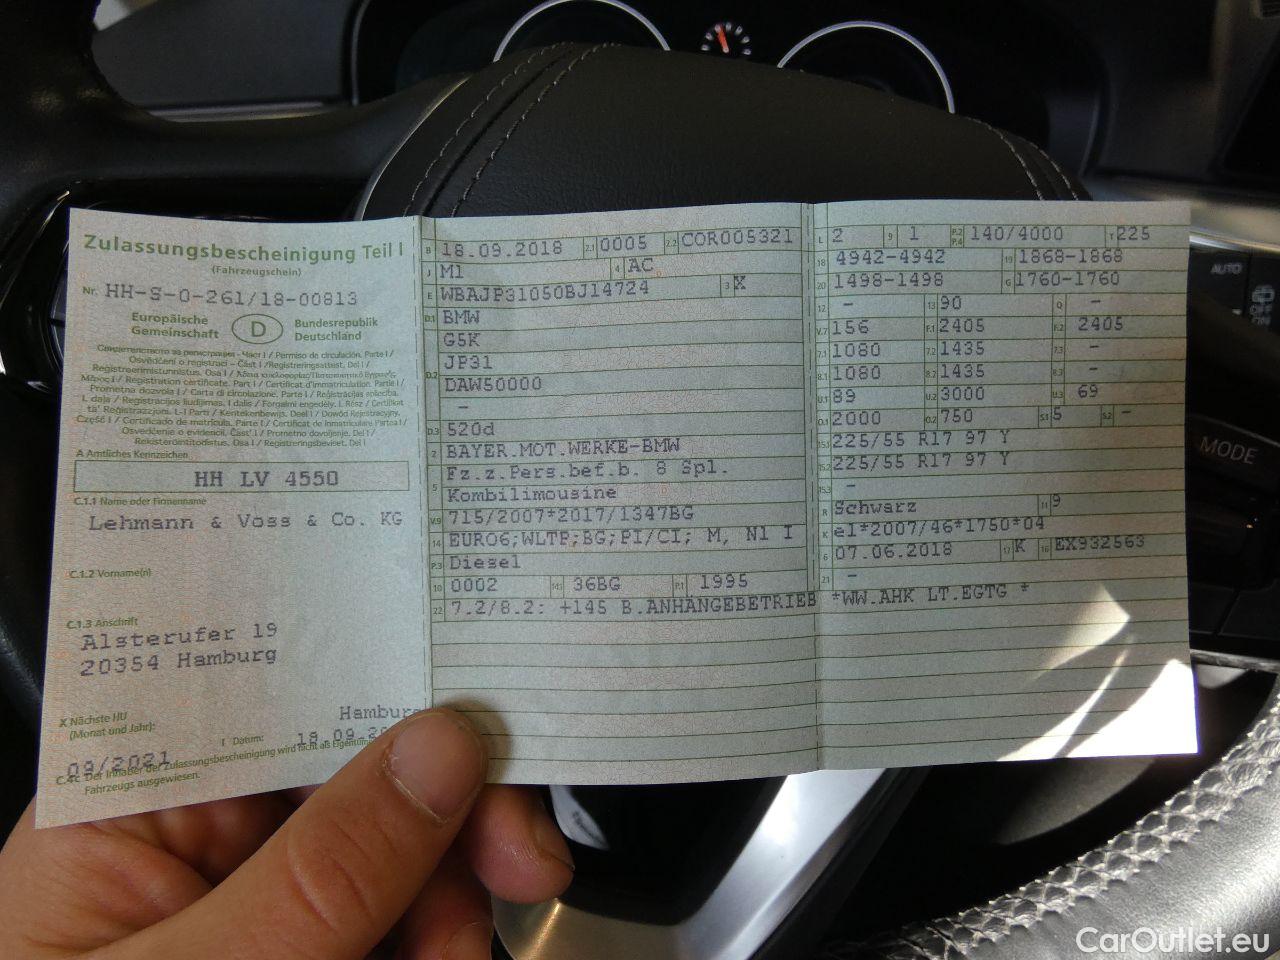 Zulassungsbescheinigung Teil I
(Fahrzeugschein)
Nr. HH-S-0-261/18-00813
Europäische Gemeinschaft D Bundesrepublik Deutschland
Osvědčení o registraci – Část I / Registreringsattest, Del I /
Registreerimistunnistus. Osa I /
/ Registration certificate. Part I / Certificat d'immatriculation. Partie I /
Prometna dozvola I / Carta di circolazione. Parte I / Reģistrācijas
A Amtliches Kennzeichen
HH LV 4550
C.1.1 Name oder Firmenname
Lehmann & Voss & Co. KG
C.1.2 Vorname(n)
C.1.3 Anschrift
Alsterufer 19
20354 Hamburg
X Nächste HU
(Monat und Jahr):
09/2021
Hamburg
I Datum: 18.09.20
C.4c Der Inhaber der Zulassungsbescheinigung wird nicht als Eigentümer
Fahrzeugs ausgewiesen.
B 18.09.2018 2.1 0005 2.2 COR005321
J M1 4 AC
E WBAJP31050BJ14724 3 X
D.1 BMW
G5K
JP31
D.2 DAW50000
–
D.3 520d
2 BAYER.MOT.WERKE-BMW
Fz.z.Pers.bef.b. 8 Spl.
5 Kombilimousine
V.9 715/2007*2017/1347BG
14 EURO6;WLTP;BG;PI/CI; M, N1 I
P.3 Diesel
10 0002 14.1 36BG P.1 1995
22 7.2/8.2: +145 B.ANHÄNGEBETRIEB *WW.AHK LT.EGTG *
L 2 9 1 P.2 P.4 140/4000 T 225
18 4942-4942 19 1868-1868
20 1498-1498 G 1760-1760
12 – 13 90 Q –
V.7 156 F.1 2405 F.2 2405
7.1 1080 7.2 1435 7.3 –
8.1 1080 8.2 1435 8.3 –
U.1 89 U.2 3000 U.3 69
O.1 2000 O.2 750 S.1 5 S.2 –
15.1 225/55 R17 97 Y
15.2 225/55 R17 97 Y
15.3 –
R Schwarz 11 9
K e1*2007/46*1750*04
6 07.06.2018 17 K 16 EX932563
21 –
AUTO
OFF
MODE
CarOutlet.eu